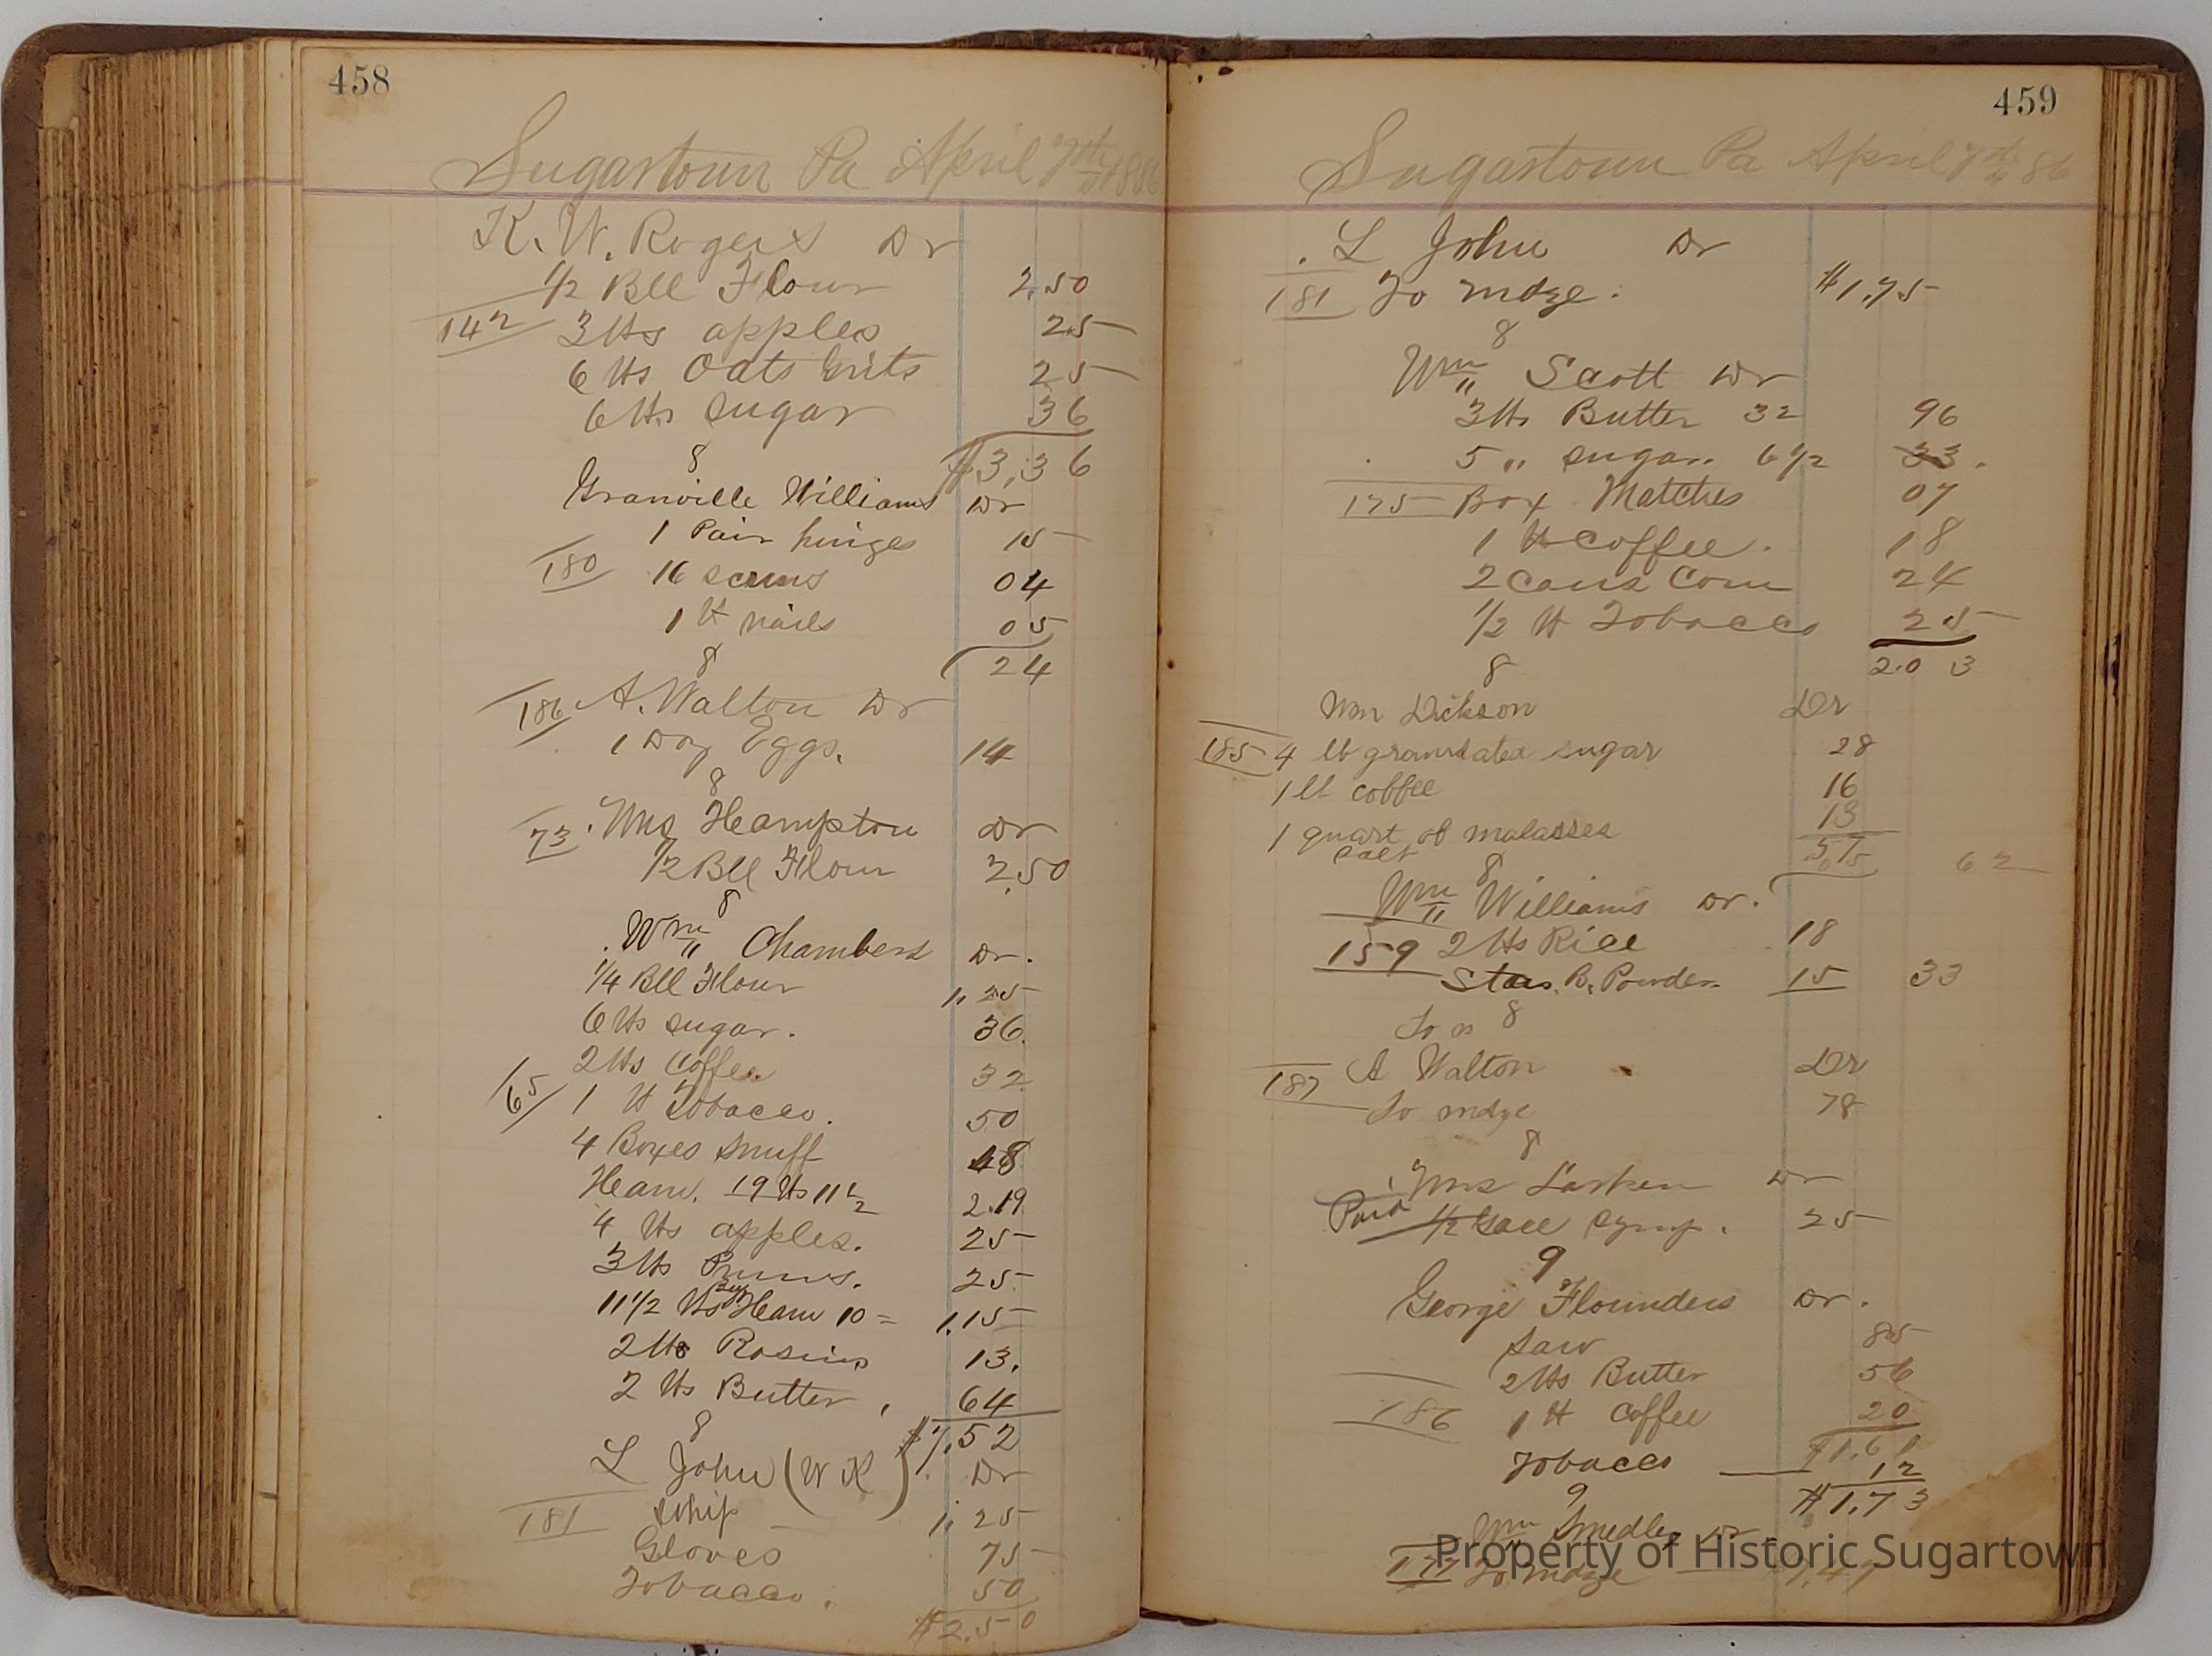 458
Sugartown Pa April 7th 1886
K. W. Rogers Dr
1/2 Bll Flour 2.50
142 3 lbs apples 25
6 lbs Oats Grits 25
6 lbs sugar 36
$3,36
8
Granville Williams Dr
1 Pair hinges 15
180 16 screws 04
1 lb nails 05
24
8
186 A. Walton Dr
1 Doz Eggs. 14
8
73 Mrs Hampton Dr
1/2 Bll Flour 2,50
8
Wm Chambers Dr.
1/4 Bll Flour 1,25
6 lbs sugar. 36
2 lbs Coffee 32
65 1 lb Tobacco. 50
4 Boxes Snuff 48
Ham. 19 lbs 11 1/2 2.19
4 lbs apples. 25
3 lbs Pruns. 25
11 1/2 lbs Ham 10 = 1,15
2 lbs Rasins 13.
2 lbs Butter, 64
$7.52
8
L John (W K) Dr
181 Whip 1,25
Gloves 75
Tobacco. 50
$2.50
459
Sugartown Pa April 7th 86
L John Dr
181 To mdze. $1.75
8
Wm Scott Dr
3 lbs Butter 32 96
5 " sugar. 6 1/2 33
175 Box Matches 07
1 lb Coffee. 18
2 Cans Corn 24
1/2 lb Tobacco 25
2.03
8
Wm Dickson Dr
185 4 lb granulated sugar 28
1 lb coffee 16
1 quart of malasses 13
Salt 5
62
8
Wm Williams Dr.
159 2 lbs Rice 18
Star. B. Powder. 15 33
8
187 A Walton Dr
To mdze 78
8
Mrs Larken Dr
Paid 1/2 Gall Syrup. 25
9
George Flounders Dr.
Saw 85
2 lbs Butter 56
186 1 lb Coffee 20
$1.61
Tobacco 12
$1.73
9
Wm Smedley Dr
177 To mdze
Property of Historic Sugartown